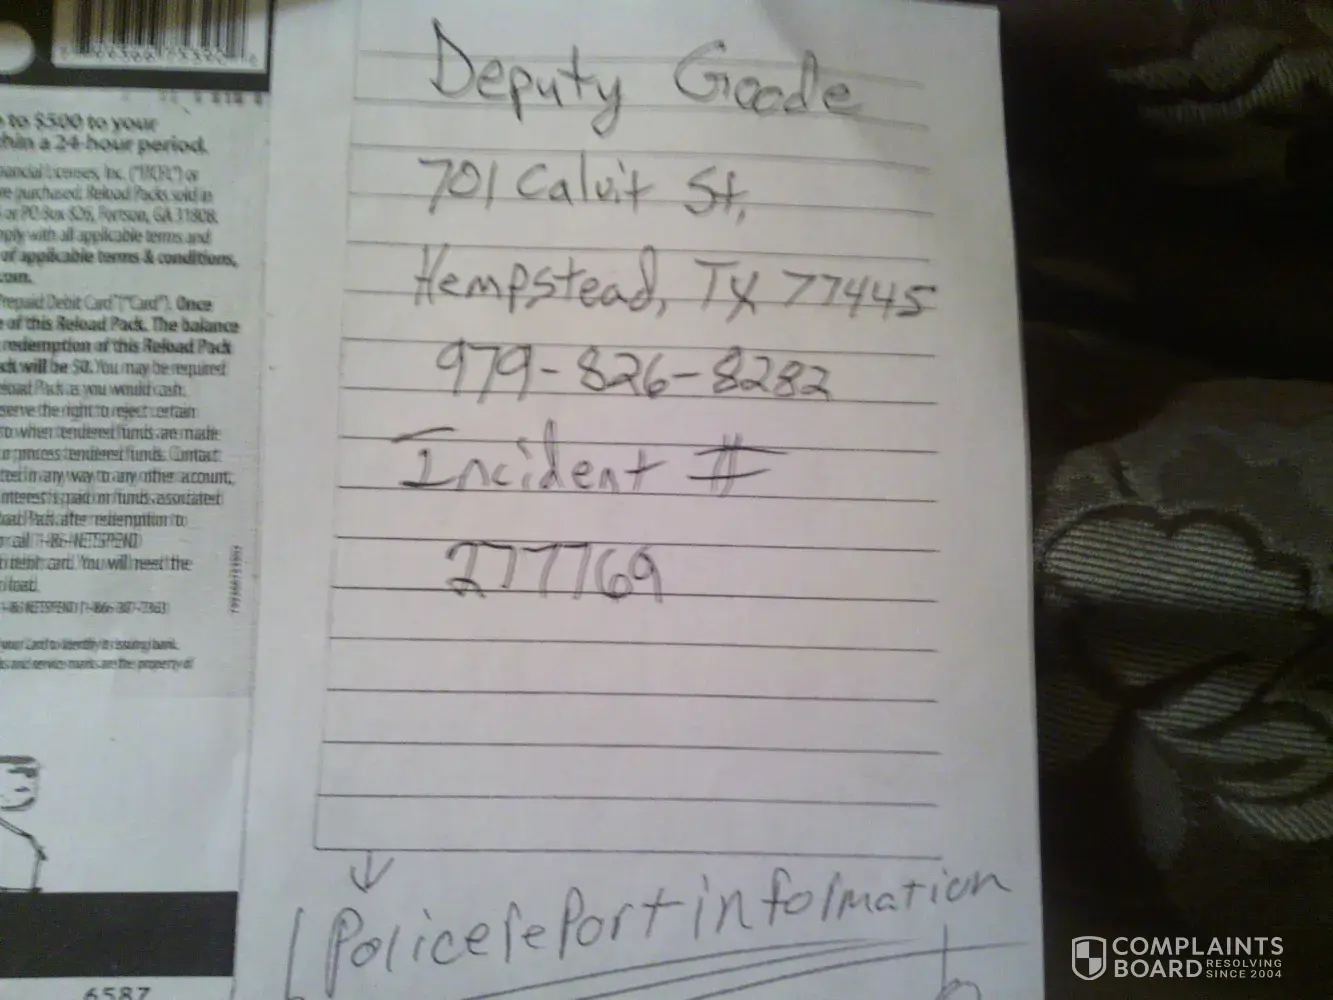 to $500 to your
a 24-hour period.
or PO Box 826, Fortson, GA 31808.
with all applicable terms and
of applicable terms & conditions,
Prepaid Debit Card ("Card"). Once
of this Reload Pack. The balance
redemption of this Reload Pack
will be $0. You may be required
Pack as you would cash.
the right to reject certain
when tendered funds are made
process tendered funds. Contact
in any way to any other account.
interest is paid on funds associated
Pack after redemption to
call (1-86-NETSPEND)
debit card. You will need the
(1-866-387-7363)
your Card to identify its issuing bank.
and service marks are the property of
6587
Deputy Goode
701 Calvit St,
Hempstead, TX 77445
979-826-8282
Incident #
277769
Police report information
COMPLAINTS
BOARD RESOLVING
SINCE 2004